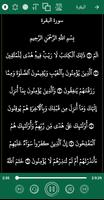 البقرة
سورة البقرة
بِسْمِ اللَّهِ الرَّحْمَٰنِ الرَّحِيمِ
الم ۝ ذَٰلِكَ الْكِتَابُ لَا رَيْبَ فِيهِ هُدًى لِّلْمُتَّقِينَ
۝ الَّذِينَ يُؤْمِنُونَ بِالْغَيْبِ وَيُقِيمُونَ الصَّلَاةَ وَمِمَّا
رَزَقْنَاهُمْ يُنفِقُونَ ۝ وَالَّذِينَ يُؤْمِنُونَ بِمَا أُنزِلَ
إِلَيْكَ وَمَا أُنزِلَ مِن قَبْلِكَ وَبِالْآخِرَةِ هُمْ يُوقِنُونَ
۝ أُولَٰئِكَ عَلَىٰ هُدًى مِّن رَّبِّهِمْ وَأُولَٰئِكَ هُمُ
الْمُفْلِحُونَ ۝ إِنَّ الَّذِينَ كَفَرُوا سَوَاءٌ عَلَيْهِمْ